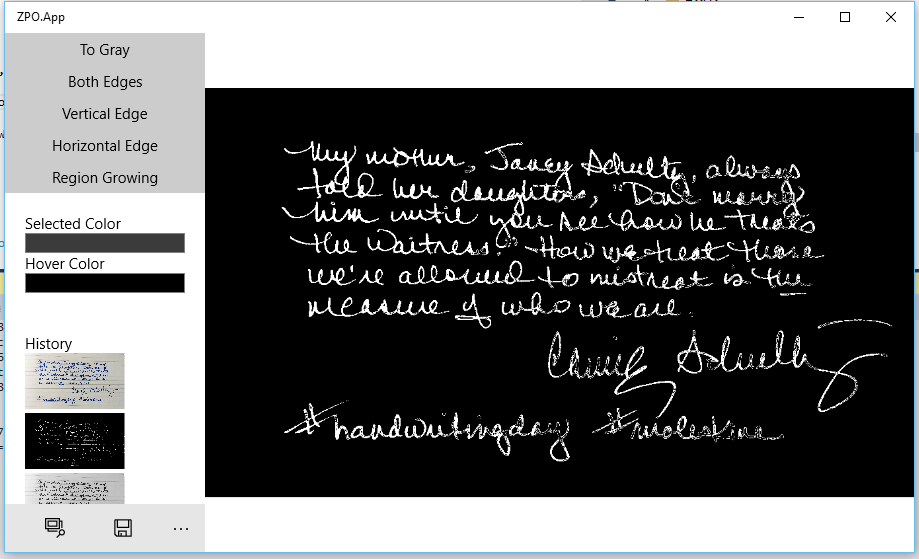 ZPO.App
To Gray
Both Edges
Vertical Edge
Horizontal Edge
Region Growing
Selected Color
Hover Color
History
My mother, Janey Schultz, always
told her daughters, "Don't marry
him until you see how he treats
the waitress." How we treat those
we're allowed to mistreat is the
measure of who we are.
Schultz
#handwritingday #moleskine